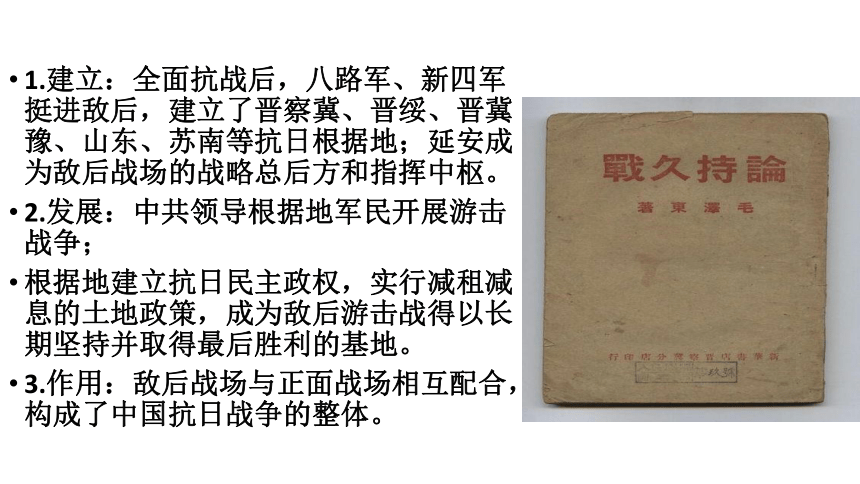 • 1.建立：全面抗战后，八路军、新四军
挺进敌后，建立了晋察冀、晋绥、晋冀
豫、山东、苏南等抗日根据地；延安成
为敌后战场的战略总后方和指挥中枢。
• 2.发展：中共领导根据地军民开展游击
战争；
• 根据地建立抗日民主政权，实行减租减
息的土地政策，成为敌后游击战得以长
期坚持并取得最后胜利的基地。
• 3.作用：敌后战场与正面战场相互配合，
构成了中国抗日战争的整体。
戰久持論
著東澤毛
行印店分冀察晋店書華新